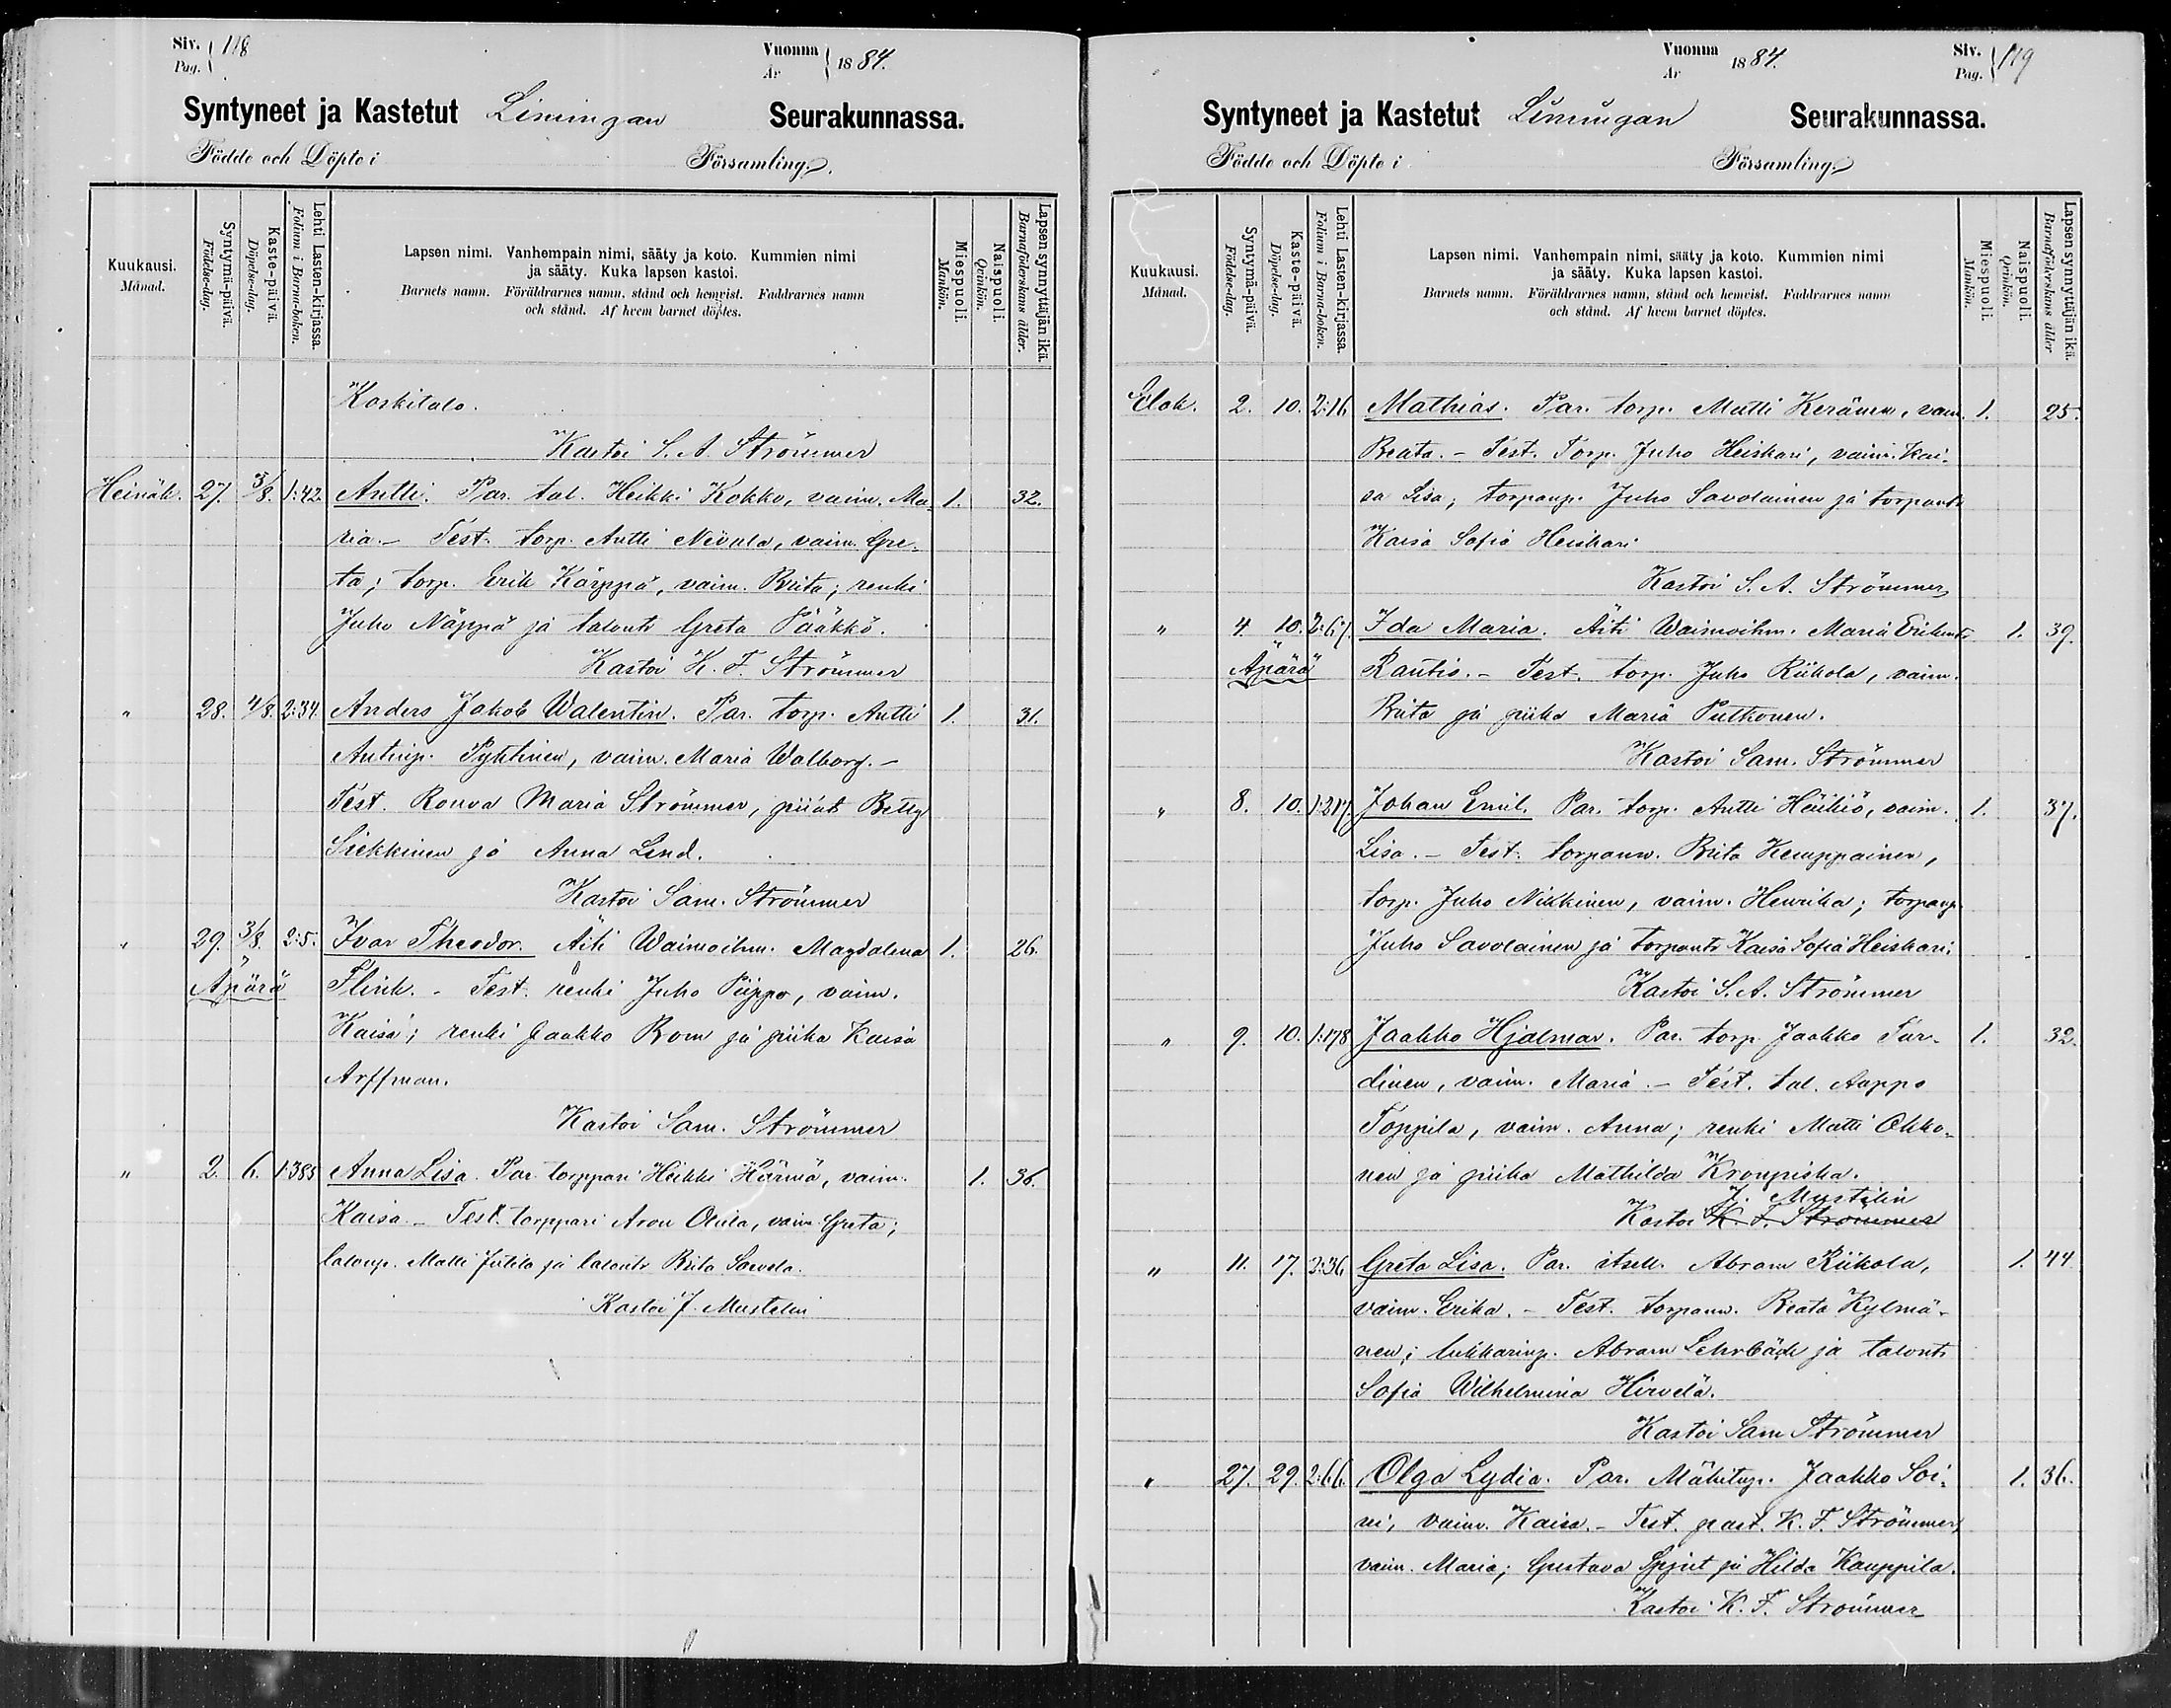 Siv. 118
Pag.
Vuonna 1884.
År
Syntyneet ja Kastetut Limingan Seurakunnassa.
Födde och Döpte i Församling.
Kuukausi.
Månad.
Syntymä-päivä.
Födelse-dag.
Kaste-päivä.
Döpelse-dag.
Lehti Lasten-kirjassa.
Folium i Barna-boken.
Lapsen nimi. Vanhempain nimi, sääty ja koto. Kummien nimi
ja sääty. Kuka lapsen kastoi.
Barnets namn. Föräldrarnes namn, stånd och hemvist. Faddrarnes namn
och stånd. Af hvem barnet döptes.
Miespuoli.
Mankön.
Naispuoli.
Qvinkön.
Lapsen synnyttäjän ikä.
Barnaföderskans ålder.
Koskitalo.
Kastoi S. A. Strömmer
Heinäk. 27. 3/8. 1:42. Antti. Par. tal. Heikki Kokko, vaim. Ma- 1. 32.
ria. – Test. torp. Antti Nivala, vaim. Gre-
ta; torp. Erik Kärppä, vaim. Briita; renki
Juho Näppä ja talontr Greta Pääkkö.
Kastoi K. F. Strömmer
" 28. 4/8. 2:34. Anders Jakob Walentin. Par. torp. Antti 1. 31.
Antinp. Pyhtinen, vaim. Maria Walborg. –
Test. Rouva Maria Strömmer, piiat Betty
Siekkinen ja Anna Lind.
Kastoi Sam. Strömmer
" 29. 3/8. 2:5. Ivar Theodor. Äiti Waimoihm. Magdalena 1. 26.
Äpärä Flink. – Test. renki Juho Piippo, vaim.
Kaisa; renki Jaakko Rom ja piika Kaisa
Arffman.
Kastoi Sam. Strömmer
" 2. 6. 1:385 Anna Lisa. Par. torppari Heikki Härmä, vaim. 1. 36.
Kaisa. – Test. torppari Aron Olila, vaim Greta;
talonp. Matti Jutila ja talontr Briita Sarvela.
Kastoi J. Mustelin
Vuonna 1884.
År
Siv. 119
Pag.
Syntyneet ja Kastetut Limingan Seurakunnassa.
Födde och Döpte i Församling.
Kuukausi.
Månad.
Syntymä-päivä.
Födelse-dag.
Kaste-päivä.
Döpelse-dag.
Lehti Lasten-kirjassa.
Folium i Barna-boken.
Lapsen nimi. Vanhempain nimi, sääty ja koto. Kummien nimi
ja sääty. Kuka lapsen kastoi.
Barnets namn. Föräldrarnes namn, stånd och hemvist. Faddrarnes namn
och stånd. Af hvem barnet döptes.
Miespuoli.
Mankön.
Naispuoli.
Qvinkön.
Lapsen synnyttäjän ikä.
Barnaföderskans ålder
Elok. 2. 10. 2:16 Mathias. Par. torp. Matti Keränen, vaim. 1. 25.
Beata. – Test. Torp. Juho Heiskari, vaim. Kai-
sa Lisa; torpanp. Juho Savolainen ja torpantr
Kaisa Sofia Heiskari
Kastoi S. A. Strömmer
" 4. 10. 2:67. Ida Maria. Äiti Waimoihm. Maria Erikintr 1. 39.
Äpärä Rautio. – Test. torp. Juho Riikola, vaim.
Briita ja piika Maria Putkonen.
Kastoi Sam. Strömmer
" 8. 10. 1:317. Johan Emil. Par. torp. Antti Häikiö, vaim. 1. 37.
Lisa. – Test. torpanv. Briita Kemppainen,
torp. Juho Nikkinen, vaim. Henrika; torpanp.
Juho Savolainen ja torpantr Kaisa Sofia Heiskari.
Kastoi S. A. Strömmer
" 9. 10. 1:178 Jaakko Hjalmar. Par. torp. Jaakko Tur- 1. 32.
dinen, vaim. Maria. – Test. tal. Aappo
Toppila, vaim. Anna; renki Matti Okko-
nen ja piika Mathilda Kronqviska.
J. Mustelin
Kastoi K. F. Strömmer
" 11. 17. 2:36 Greta Lisa. Par. itsell. Abram Riikola, 1. 44
vaim. Erika. – Test. torpanv. Beata Kylmä-
nen; lukkarinp. Abram Lehrbäck ja talontr
Sofia Wilhelmina Hirvelä.
Kastoi Sam Strömmer
" 27. 29. 2:66. Olga Lydia. Par. Mäkitup. Jaakko Soi- 1. 36.
ni, vaim. Kaisa. – Test. past. K. F. Strömmer,
vaim. Maria; Gustava ja Hilda Kauppila.
Kastoi K. F. Strömmer